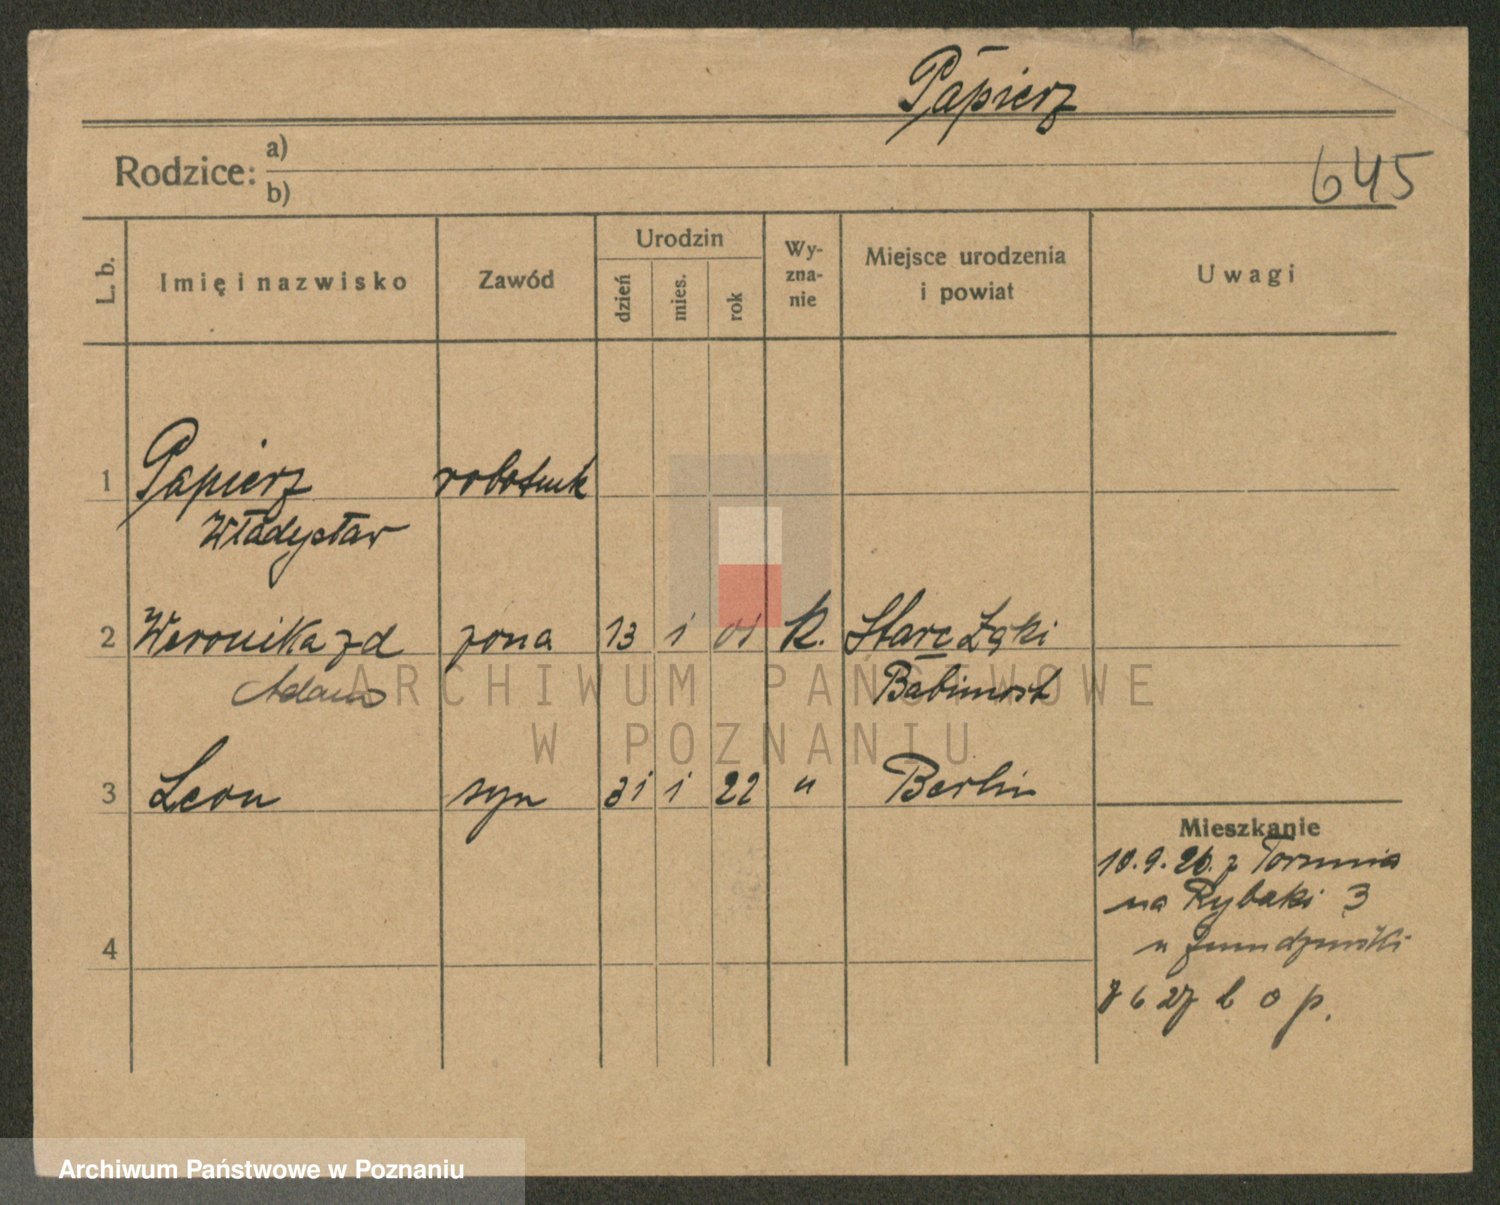 Papierz
645
Rodzice: a)
b)
L. b.
Imię i nazwisko
Zawód
Urodzin
dzień
mies.
rok
Wy-
zna-
nie
Miejsce urodzenia
i powiat
Uwagi
1 Papierz robotnik
Władysław
2 Weronika zd żona 13 1 01 k. Starc Żąki
Adams Babimost
3 Leon syn 31 1 22 " Berlin
4
Mieszkanie
10.9.26. z Torunia
na Rybaki 3
u
7 6 27 b o p.
ARCHIWUM PAŃSTWOWE
W POZNANIU
Archiwum Państwowe w Poznaniu